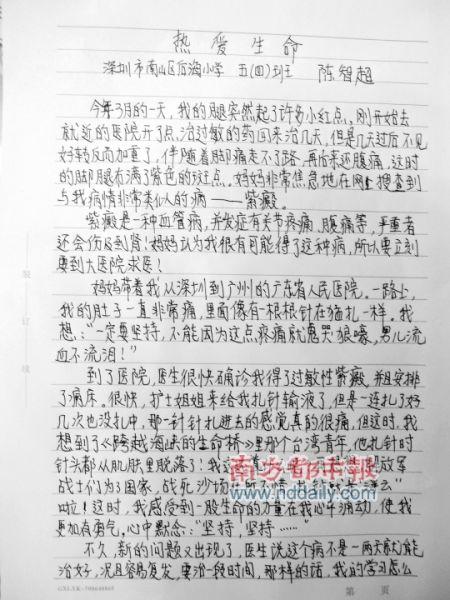 热爱生命
深圳市南山区后海小学 五(四)班 陈智超
今年3月的一天，我的腿突然起了许多小红点。刚开始去
就近的医院开了点治过敏的药回来治几天，但是几天过后不见
好转反而加重了，伴随着脚痛走不了路，再后来还腹痛，这时
的脚腿布满了紫色的斑点。妈妈非常焦急地在网上搜查到
与我病情非常类似的病——紫癜。
紫癜是一种血管病，并发症有关节疼痛、腹痛等，严重者
还会伤及到肾！妈妈认为我很有可能得了这种病，所以要立刻
要到大医院求医！
妈妈带着我从深圳到广州的广东省人民医院。一路上，
我的肚子一直非常痛，里面像有一根根针在猫扎一样。我
想：“一定要坚持，不能因为这点疼痛就鬼哭狼嚎，男儿流
血不流泪！”
到了医院，医生很快确诊我得了过敏性紫癜，并且安排
了病床。很快，护士姐姐来给我扎针输液了，但是一连扎了好
几次也没扎中，那一针针扎进去的感觉真的很痛，但这时，我
想到了《跨越海峡的生命桥》里那个台湾青年，他扎针时
针头都从肌肤里脱落了！我
放军
战士们为了国家，战死沙场
啦！这时，我感受到一股生命的力量在我心中涌动，使我
更加有勇气，心中默念：“坚持，坚持……”
不久，新的问题又出现了，医生说这个病不是一两天就能
治好，况且容易复发，要治一段时间，那样的话，我的学习怎么
南方都市报
www.nddaily.com
第 页
装 订 线